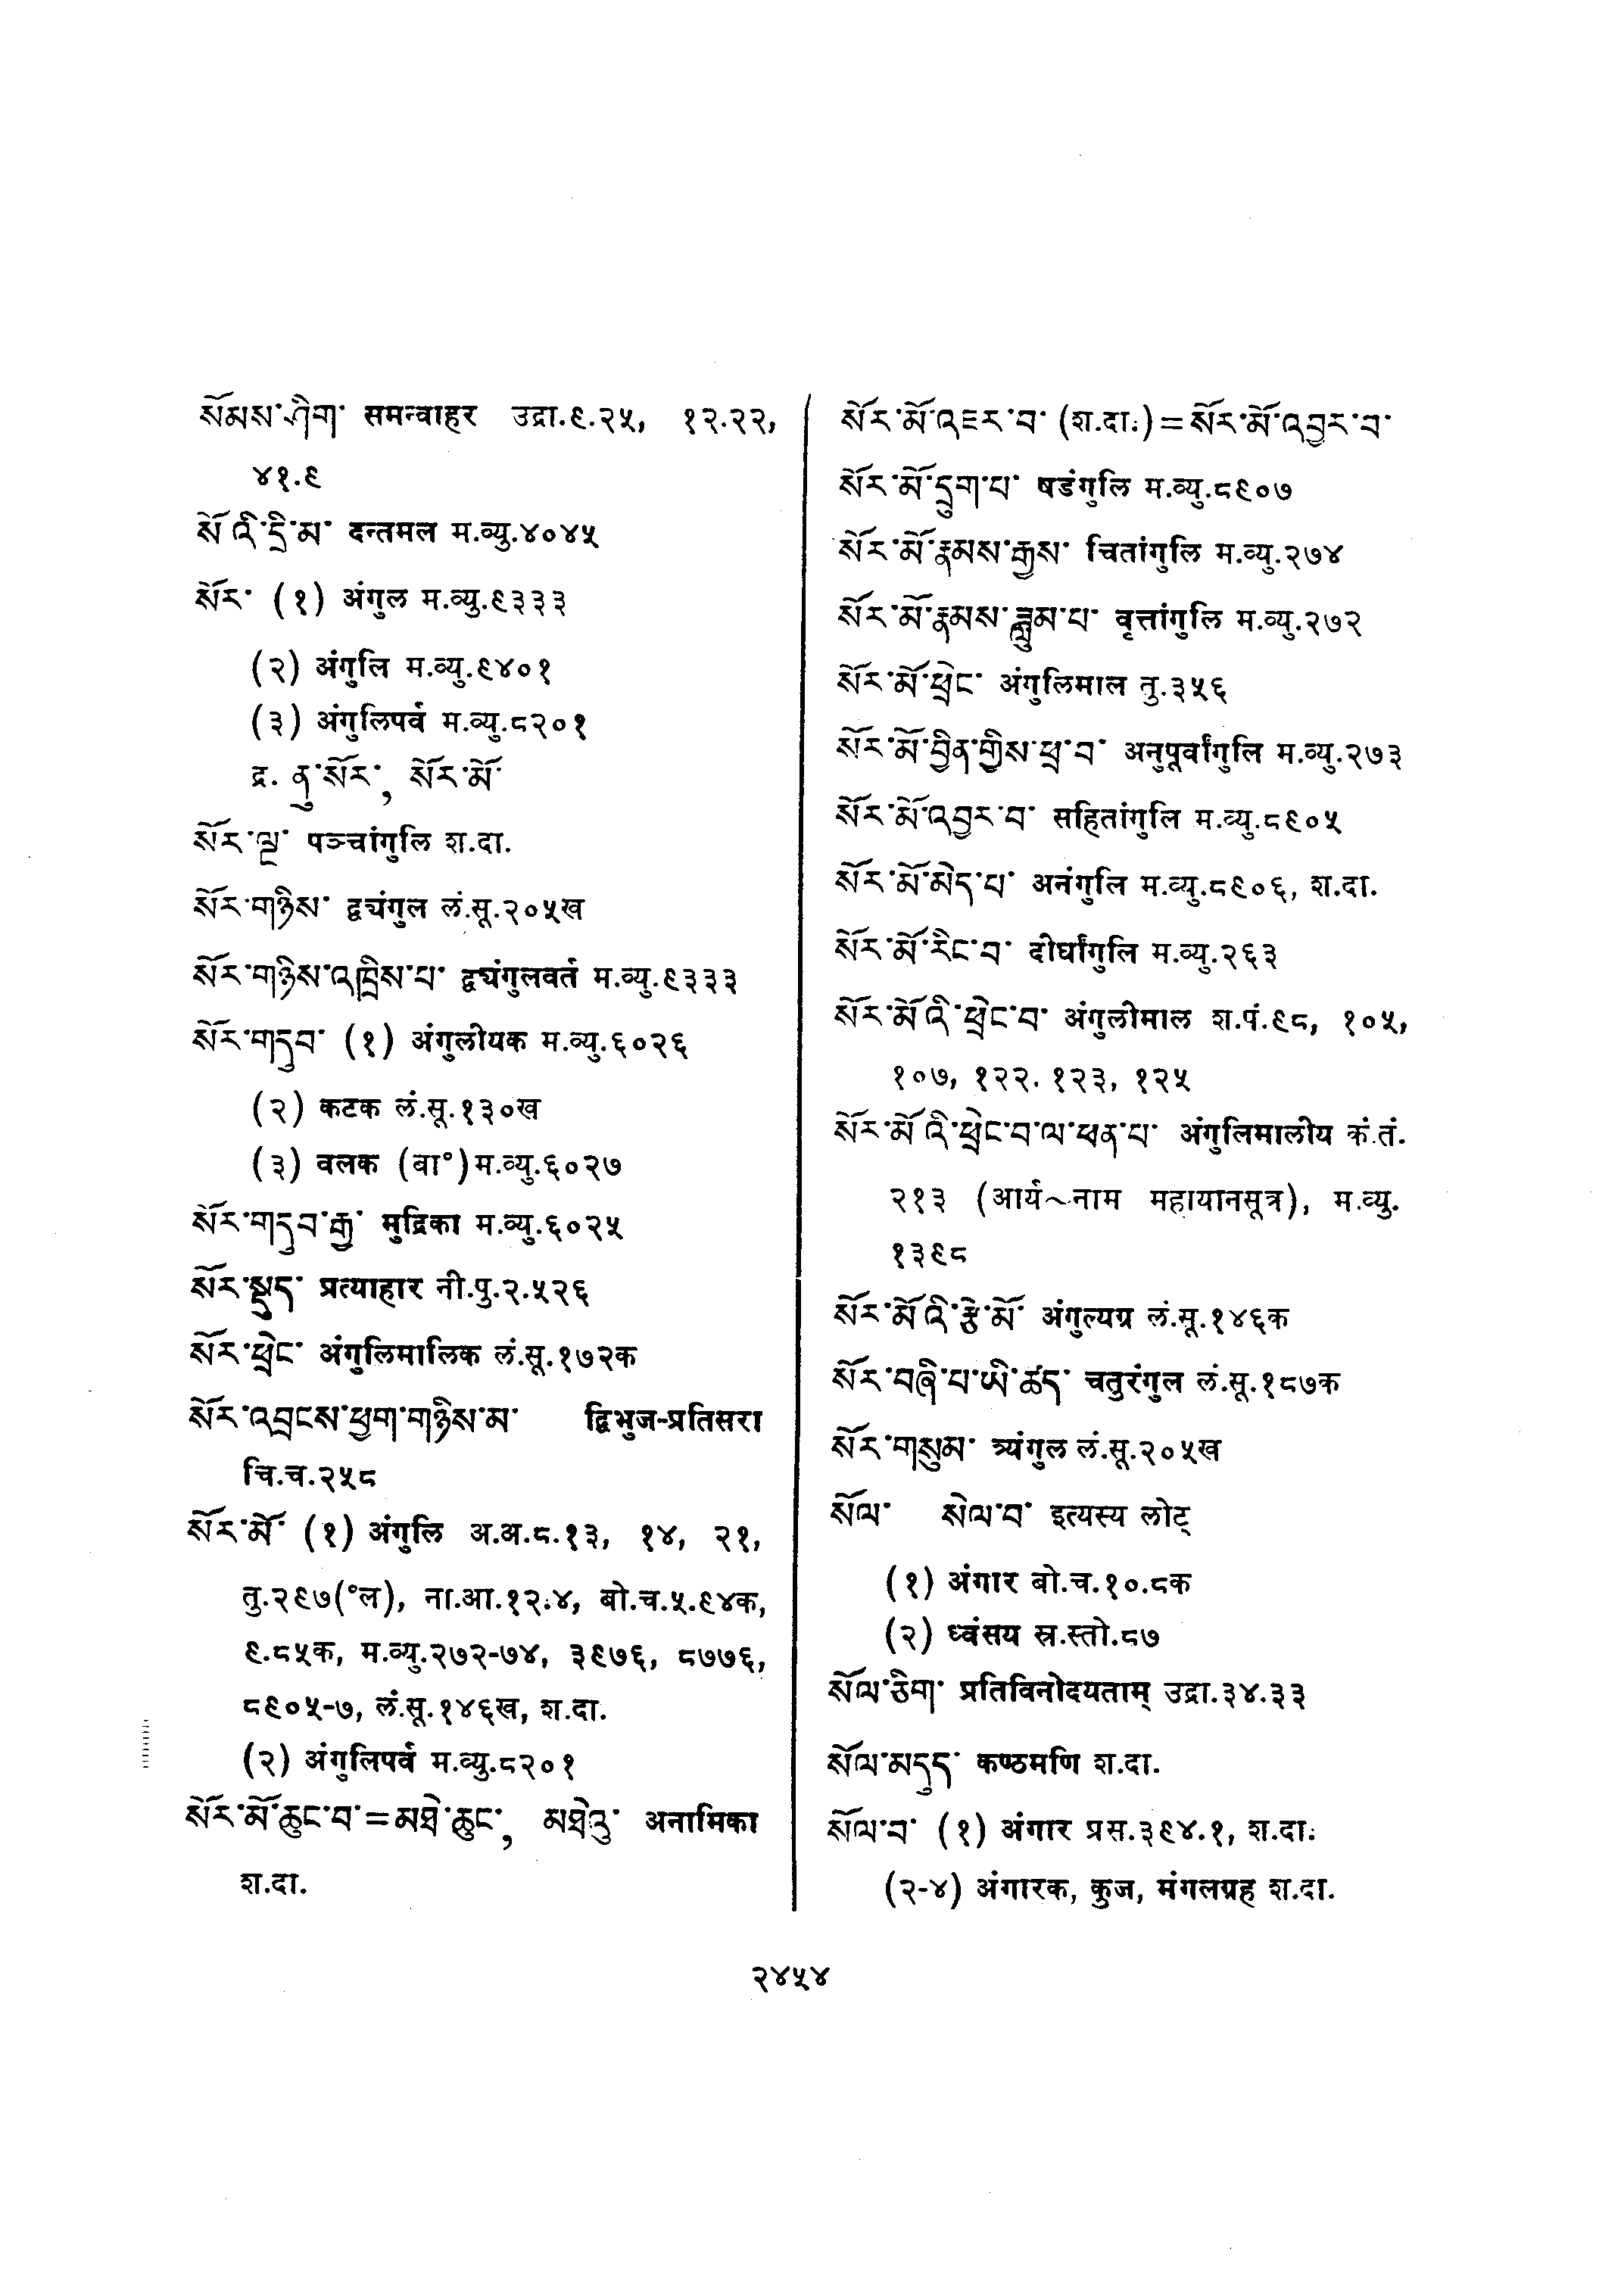 སོམས་ཤིག་ समन्वाहर उद्रा.९.२५, १२.२२,
४१.९
སོའི་དྲི་མ་ दन्तमल म.व्यु.४०४५
སོར་ (१) अंगुल म.व्यु.९३३३
(२) अंगुलि म.व्यु.९४०१
(३) अंगुलिपर्व म.व्यु.८२०१
द्र. ནུ་སོར་, སོར་མོ་
སོར་ལྔ་ पञ्चांगुलि श.दा.
སོར་གཉིས་ द्वयंगुल लं.सू.२०५ख
སོར་གཉིས་འཁྲིས་པ་ द्व्यंगुलवर्त म.व्यु.९३३३
སོར་གདུབ་ (१) अंगुलीयक म.व्यु.६०२६
(२) कटक लं.सू.१३०ख
(३) वलक (बा°)म.व्यु.६०२७
སོར་གདུབ་རྒྱ་ मुद्रिका म.व्यु.६०२५
སོར་སྡུད་ प्रत्याहार नी.पु.२.५२६
སོར་ཕྲེང་ अंगुलिमालिक लं.सू.१७२क
སོར་འབྲངས་ཕྱག་གཉིས་མ་ द्विभुज-प्रतिसरा
चि.च.२५८
སོར་མོ་ (१) अंगुलि अ.अ.८.१३, १४, २१,
तु.२९७(°ल), ना.आ.१२.४, बो.च.५.९४क,
९.८५क, म.व्यु.२७२-७४, ३९७६, ८७७६,
८९०५-७, लं.सू.१४६ख, श.दा.
(२) अंगुलिपर्व म.व्यु.८२०१
སོར་མོ་ཆུང་བ་=མཐེ་ཆུང་, མཐེའུ་ अनामिका
श.दा.
སོར་མོ་འཇར་བ་ (श.दा.)=སོར་མོ་འབྱར་བ་
སོར་མོ་དྲུག་པ་ षडंगुलि म.व्यु.८९०७
སོར་མོ་རྣམས་རྒྱས་ चितांगुलि म.व्यु.२७४
སོར་མོ་རྣམས་ཟླུམ་པ་ वृत्तांगुलि म.व्यु.२७२
སོར་མོ་ཕྲེང་ अंगुलिमाल तु.३५६
སོར་མོ་བྱིན་གྱིས་ཕྲ་བ་ अनुपूर्वांगुलि म.व्यु.२७३
སོར་མོ་འབྱར་བ་ सहितांगुलि म.व्यु.८९०५
སོར་མོ་མེད་པ་ अनंगुलि म.व्यु.८९०६, श.दा.
སོར་མོ་རིང་བ་ दीर्घांगुलि म.व्यु.२६३
སོར་མོའི་ཕྲེང་བ་ अंगुलीमाल श.पं.९८, १०५,
१०७, १२२. १२३, १२५
སོར་མོའི་ཕྲེང་བ་ལ་ཕན་པ་ अंगुलिमालीय कं.तं.
२१३ (आर्य~नाम महायानसूत्र), म.व्यु.
१३९८
སོར་མོའི་རྩེ་མོ་ अंगुल्यग्र लं.सू.१४६क
སོར་བཞི་པ་ཡི་ཚད་ चतुरंगुल लं.सू.१८७क
སོར་གསུམ་ त्र्यंगुल लं.सू.२०५ख
སོལ་ སེལ་བ་ इत्यस्य लोट्
(१) अंगार बो.च.१०.८क
(२) ध्वंसय स्र.स्तो.८७
སོལ་ཅིག་ प्रतिविनोदयताम् उद्रा.३४.३३
སོལ་མདུད་ कण्ठमणि श.दा.
སོལ་བ་ (१) अंगार प्रस.३९४.१, श.दा.
(२-४) अंगारक, कुज, मंगलग्रह श.दा.
२४५४